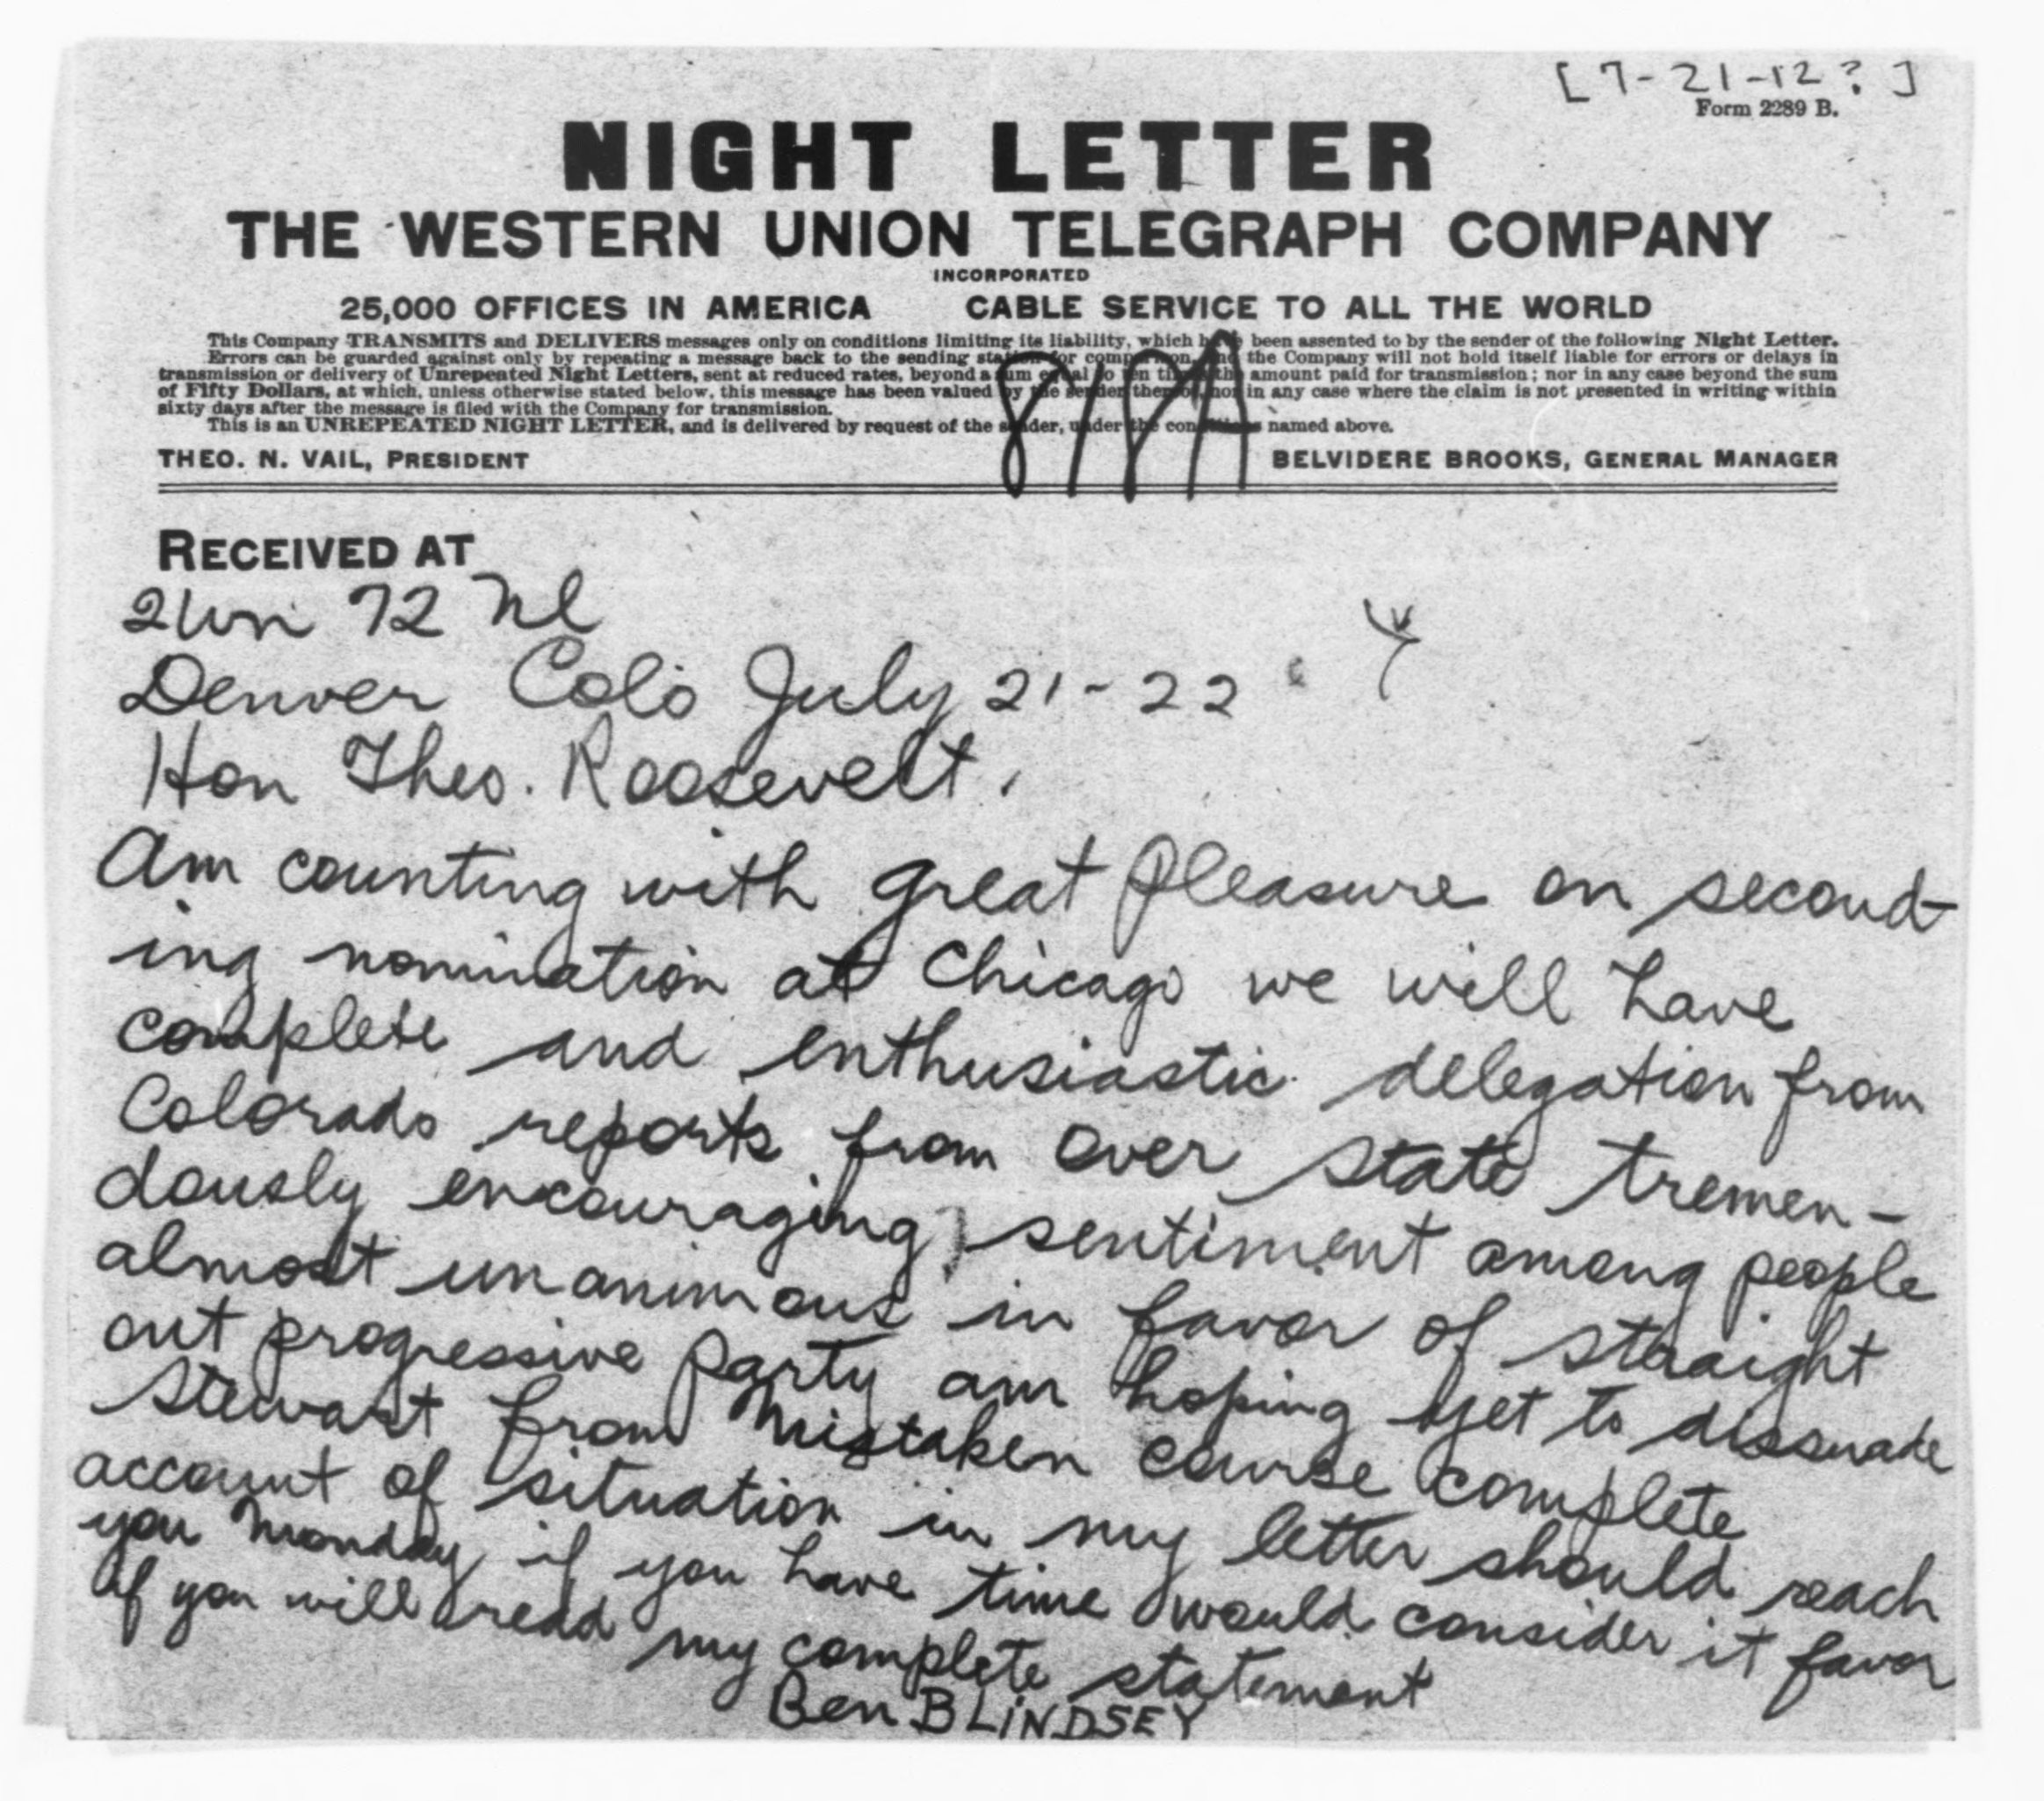 [7-21-12?]
Form 2289 B.
NIGHT LETTER
THE WESTERN UNION TELEGRAPH COMPANY
INCORPORATED
25,000 OFFICES IN AMERICA CABLE SERVICE TO ALL THE WORLD
This Company TRANSMITS and DELIVERS messages only on conditions limiting its liability, which have been assented to by the sender of the following Night Letter.
Errors can be guarded against only by repeating a message back to the sending station for comparison, and the Company will not hold itself liable for errors or delays in
transmission or delivery of Unrepeated Night Letters, sent at reduced rates, beyond a sum equal to ten times the amount paid for transmission; nor in any case beyond the sum
of Fifty Dollars, at which, unless otherwise stated below, this message has been valued by the sender thereof, nor in any case where the claim is not presented in writing within
sixty days after the message is filed with the Company for transmission.
This is an UNREPEATED NIGHT LETTER, and is delivered by request of the sender, under the conditions named above.
THEO. N. VAIL, PRESIDENT BELVIDERE BROOKS, GENERAL MANAGER
RECEIVED AT
72 Nl
Denver Colo July 21-22
Hon Theo. Roosevelt.
Am counting with great pleasure on second-
ing nomination at Chicago we will have
complete and enthusiastic delegation from
Colorado reports from over state tremen-
dously encouraging sentiment among people
almost unanimous in favor of straight
out progressive party am hoping yet to dissuade
Stewart from mistaken course complete
account of situation in my letter should reach
you monday if you have time would consider it favor
if you will read my complete statement
Ben B LiNDSEY